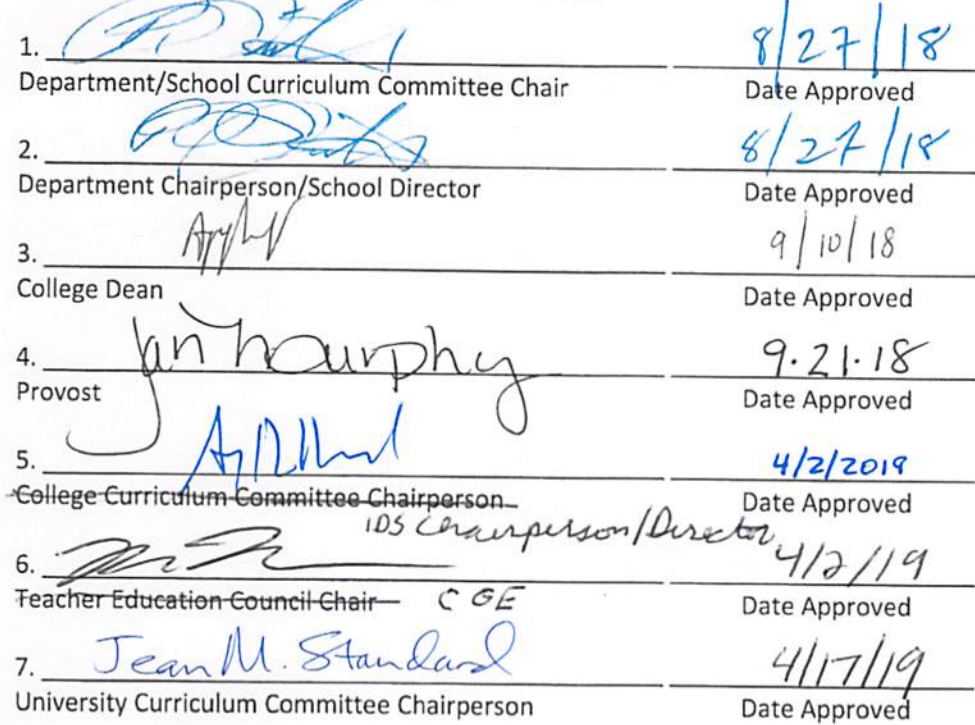 1. 8/27/18
Department/School Curriculum Committee Chair Date Approved
2. 8/27/18
Department Chairperson/School Director Date Approved
3. 9/10/18
College Dean Date Approved
4. Jan Murphy 9.21.18
Provost Date Approved
5. 4/2/2019
College Curriculum Committee Chairperson Date Approved
IDS Chairperson/Director
6. 4/2/19
Teacher Education Council Chair CGE Date Approved
7. Jean M. Standard 4/17/19
University Curriculum Committee Chairperson Date Approved